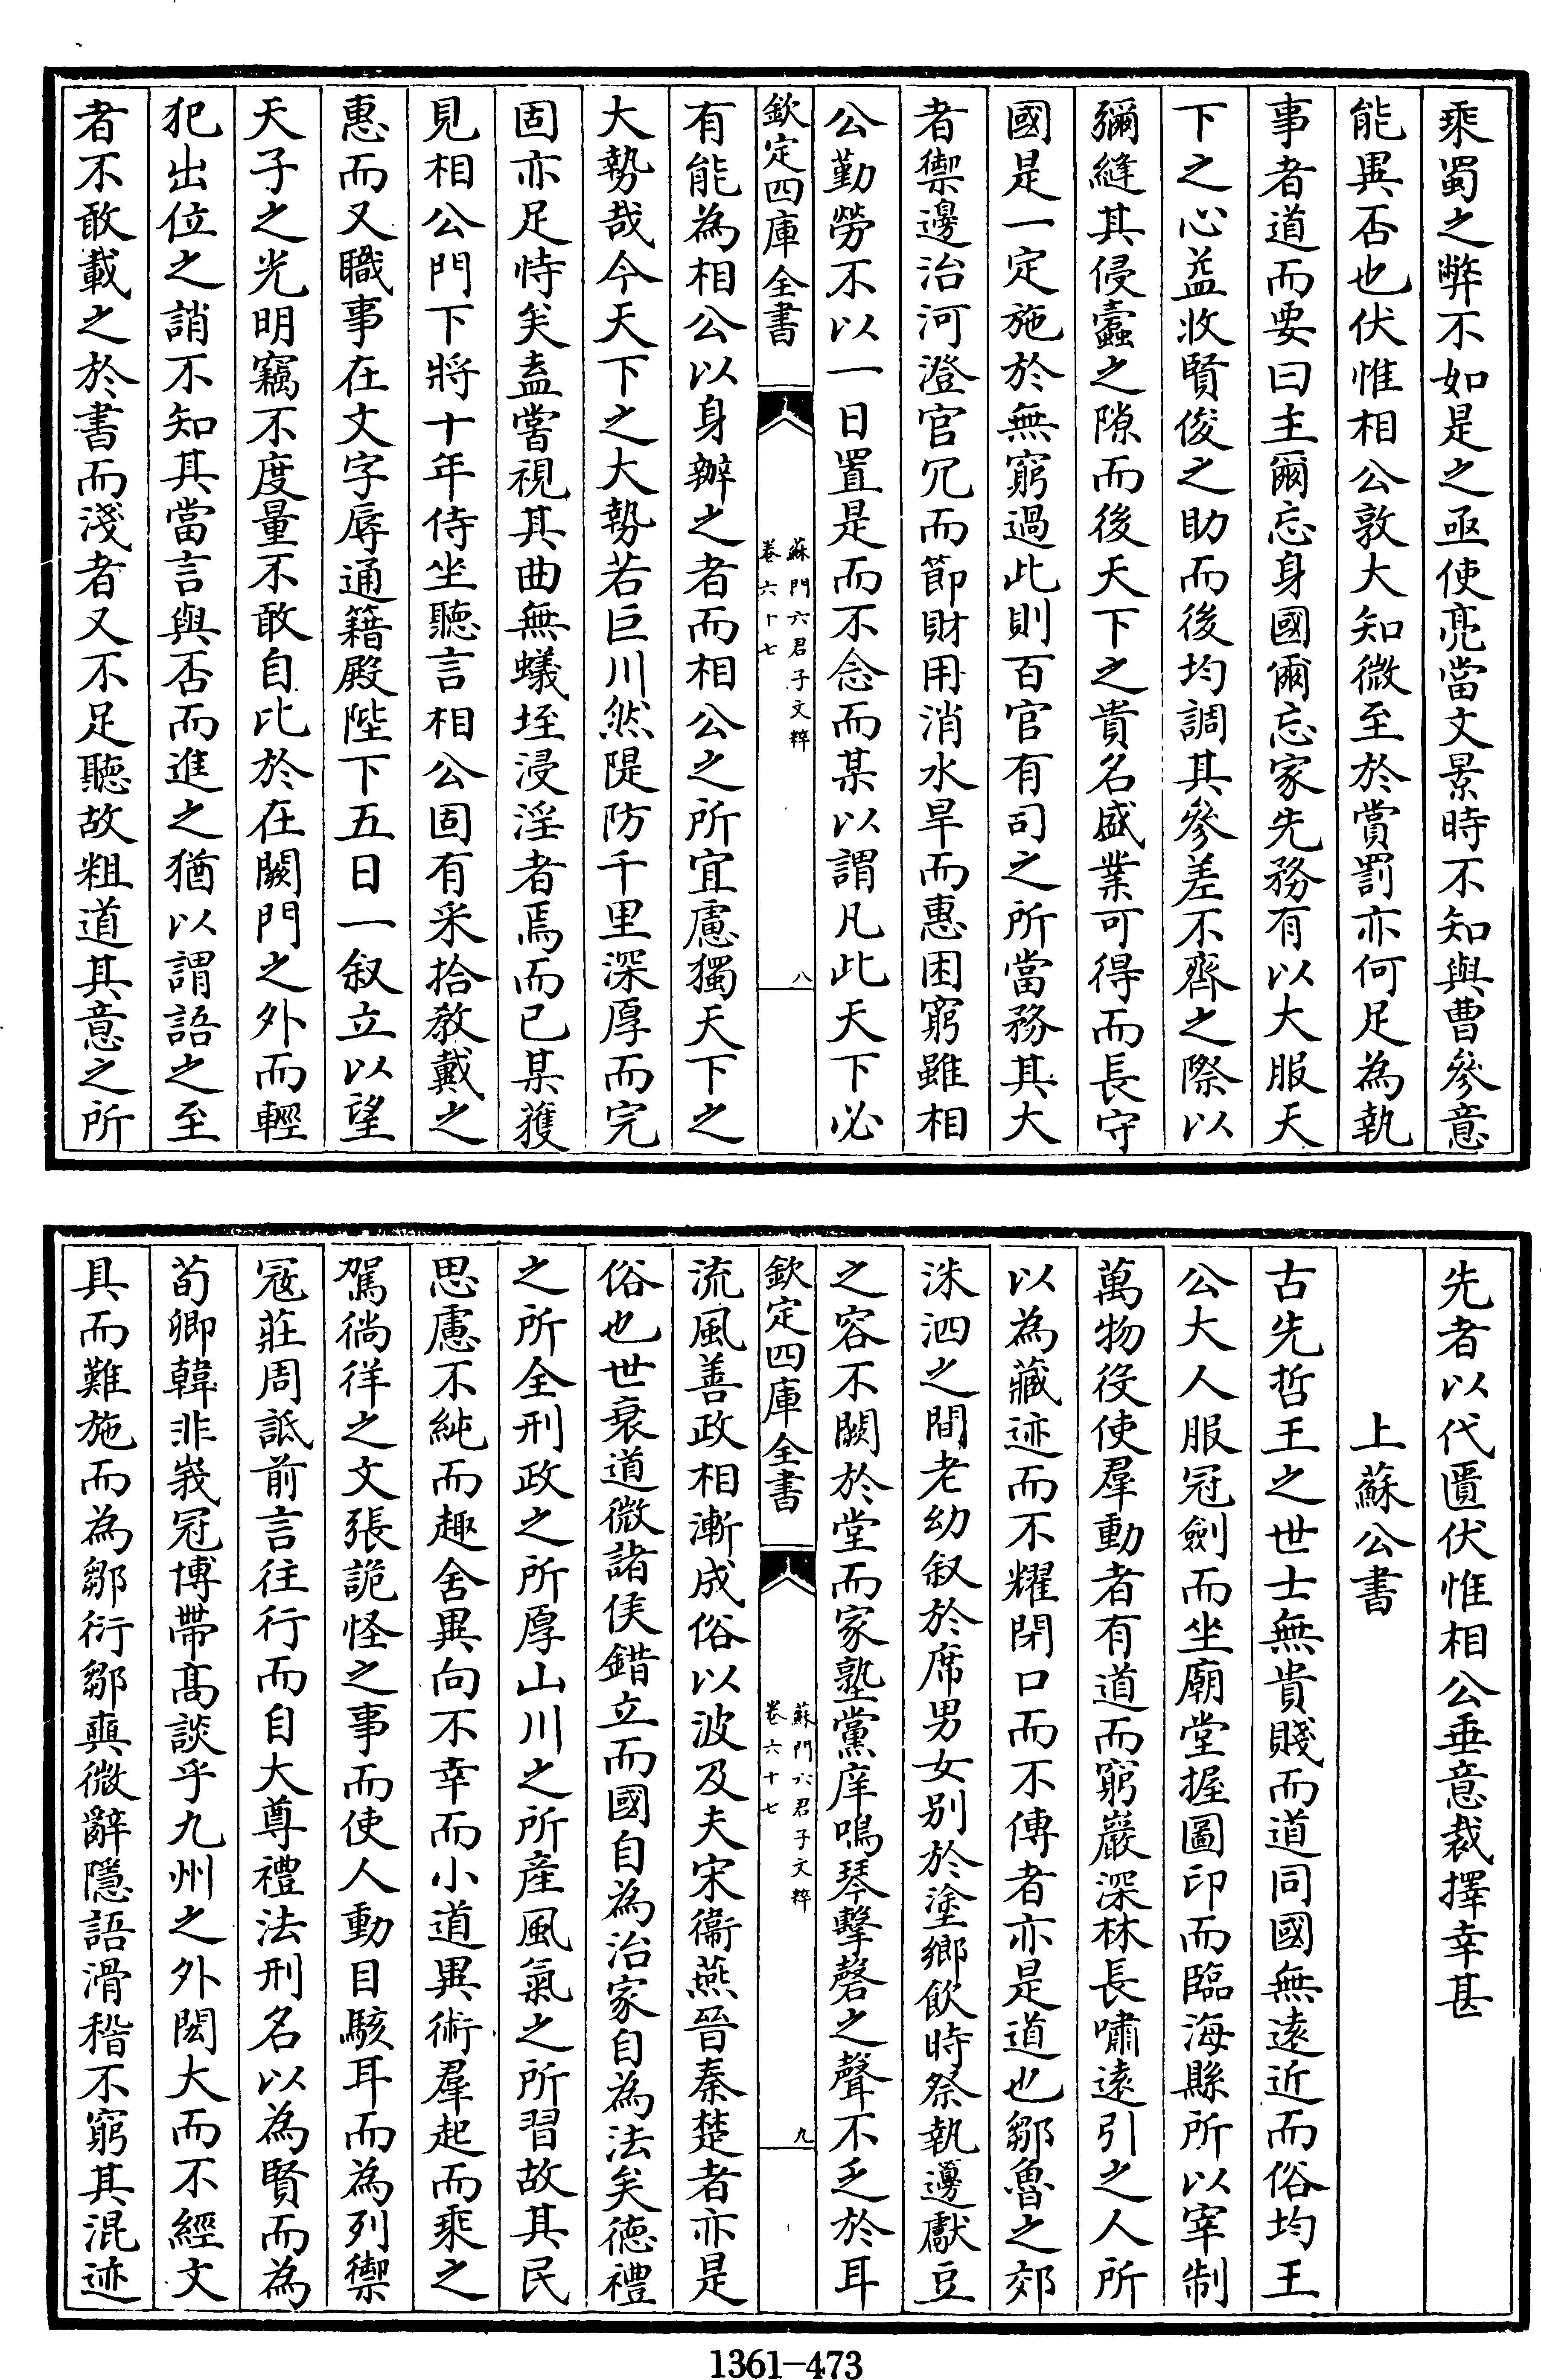 乘蜀之弊不如是之亟使亮當文景時不知與曹參意
能異否也伏惟相公敦大知微至於賞罰亦何足為執
事者道而要曰主爾忘身國爾忘家先務有以大服天
下之心益收賢俊之助而後均調其參差不齊之際以
彌縫其侵蠧之隙而後天下之貴名盛業可得而長守
國是一定施於無窮過此則百官有司之所當務其大
者禦邊治河澄官冗而節財用消水旱而惠困窮雖相
公勤勞不以一日置是而不念而某以謂凡此天下必
欽定四庫全書
蘇門六君子文粹
卷六十七
八
有能為相公以身辦之者而相公之所宜慮獨天下之
大勢哉今天下之大勢若巨川然隄防千里深厚而完
固亦足恃矣盍嘗視其曲無蟻垤浸淫者焉而已某獲
見相公門下將十年侍坐聽言相公固有采拾教戴之
惠而又職事在文字辱通籍殿陛下五日一叙立以望
天子之光明竊不度量不敢自比於在闕門之外而輕
犯出位之誚不知其當言與否而進之猶以謂語之至
者不敢載之於書而淺者又不足聽故粗道其意之所
先者以代匱伏惟相公垂意裁擇幸甚
上蘇公書
古先哲王之世士無貴賤而道同國無遠近而俗均王
公大人服冠劍而坐廟堂握圖印而臨海縣所以宰制
萬物役使羣動者有道而窮巖深林長嘯遠引之人所
以為藏迹而不耀閉口而不傳者亦是道也鄒魯之郊
洙泗之間老幼叙於席男女别於塗鄉飲時祭執籩獻豆
之容不闕於堂而家塾黨庠鳴琴擊磬之聲不乏於耳
欽定四庫全書
蘇門六君子文粹
卷六十七
九
流風善政相漸成俗以波及夫宋衞燕晉秦楚者亦是
俗也世衰道微諸侯錯立而國自為治家自為法矣德禮
之所全刑政之所厚山川之所產風氣之所習故其民
思慮不純而趣舍異向不幸而小道異術羣起而乘之
駕徜徉之文張詭怪之事而使人動目駭耳而為列禦
寇莊周詆前言往行而自大尊禮法刑名以為賢而為
荀卿韓非峩冠博帶髙談乎九州之外閎大而不經文
具而難施而為鄒衍鄒奭微辭隱語滑稽不窮其混迹
1361-473